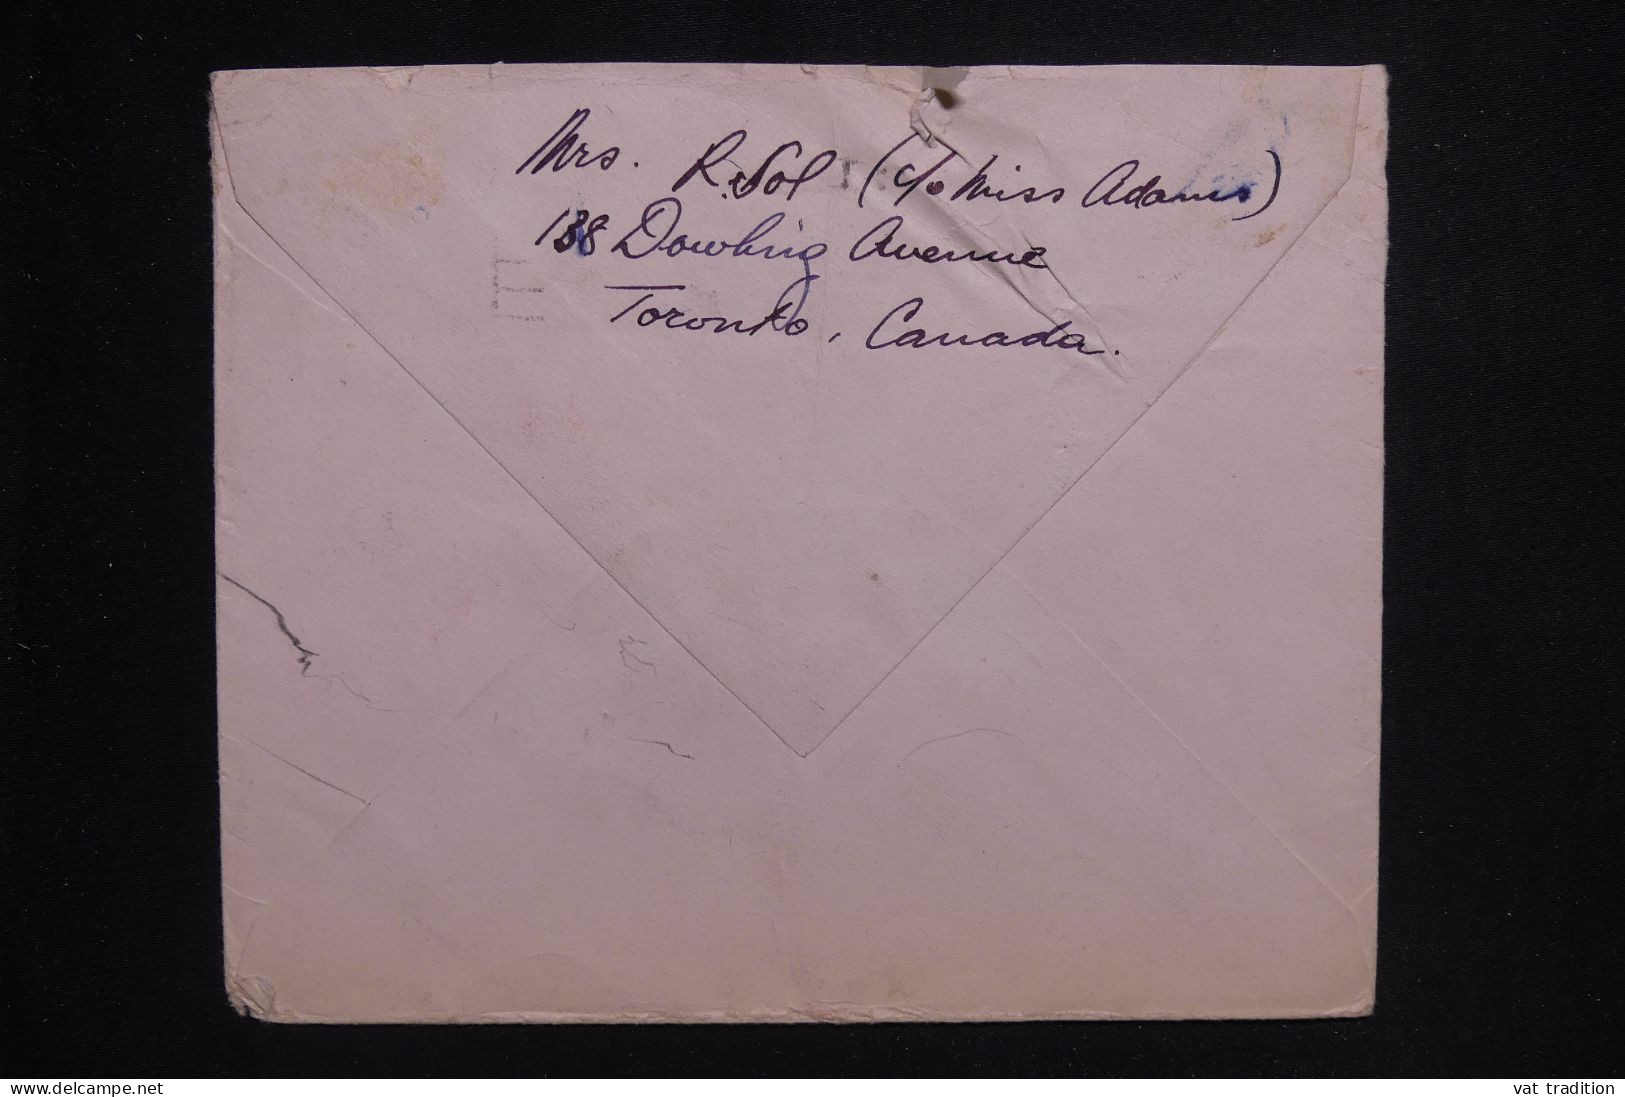 Mrs. R. Sol (c/o Miss Adams)
138 Dowling Avenue
Toronto, Canada.
www.delcampe.net
vat tradition